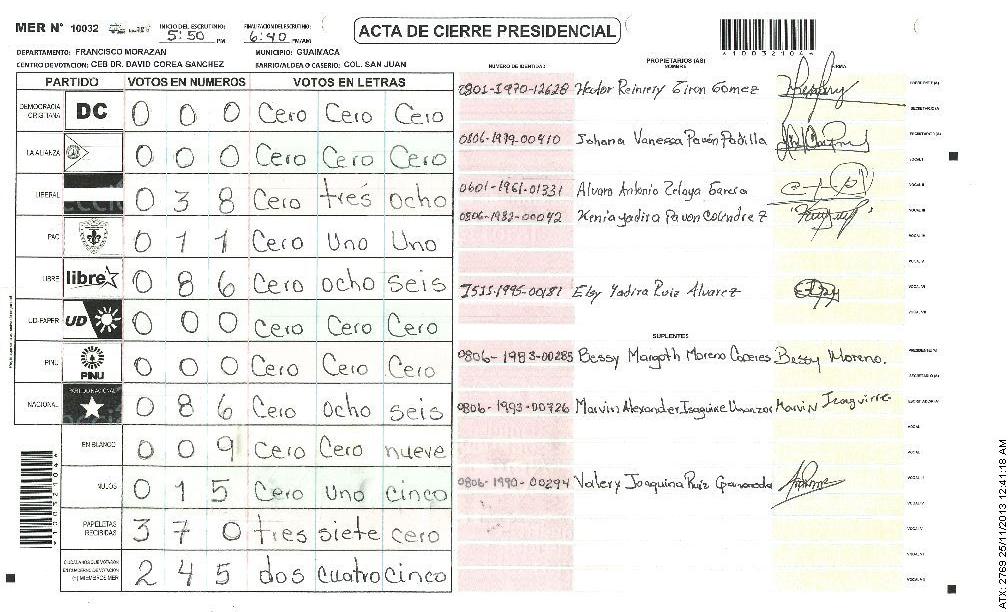 MER N° 10032 INICIO DEL ESCRUTINIO: 5:50 PM FINALIZACION DEL ESCRUTINIO: 6:40 PM/AM ACTA DE CIERRE PRESIDENCIAL
DEPARTAMENTO: FRANCISCO MORAZAN MUNICIPIO: GUAIMACA
CENTRO DE VOTACION: CEB DR. DAVID COREA SANCHEZ BARRIO/ALDEA O CASERIO: COL. SAN JUAN
PARTIDO VOTOS EN NUMEROS VOTOS EN LETRAS
DEMOCRACIA CRISTIANA DC 0 0 0 Cero Cero Cero
LA ALIANZA 0 0 0 Cero Cero Cero
LIBERAL 0 3 8 Cero tres ocho
PAC 0 1 1 Cero Uno Uno
LIBRE libre 0 8 6 Cero ocho seis
UD-FAPER UD 0 0 0 Cero Cero Cero
PINU PINU 0 0 0 Cero Cero Cero
NACIONAL 0 8 6 Cero ocho seis
EN BLANCO 0 0 9 Cero Cero nueve
NULOS 0 1 5 Cero uno cinco
PAPELETAS RECIBIDAS 3 7 0 tres siete cero
2 4 5 dos cuatro cinco
NUMERO DE IDENTIDAD PROPIETARIOS (AS) NOMBRE FIRMA
0801-1970-12628 Hector Reiniery Giron Gomez
0806-1979-00410 Johana Vanessa Pavón Padilla
0601-1961-01331 Alvaro Antonio Zelaya Garcia
0806-1982-00042 Kenia Yadira Pavon Colindrez
1511-1995-00181 Elsy Yadira Ruiz Alvarez
SUPLENTES
0806-1983-00285 Bessy Margoth Moreno Caceres Bessy Moreno.
0806-1993-00726 Marvin Alexander Isaguirre Marvin Isaguirre
0806-1990-00294 Valery Joaquina Ruiz
ATX: 2769 25/11/2013 12:41:18 AM